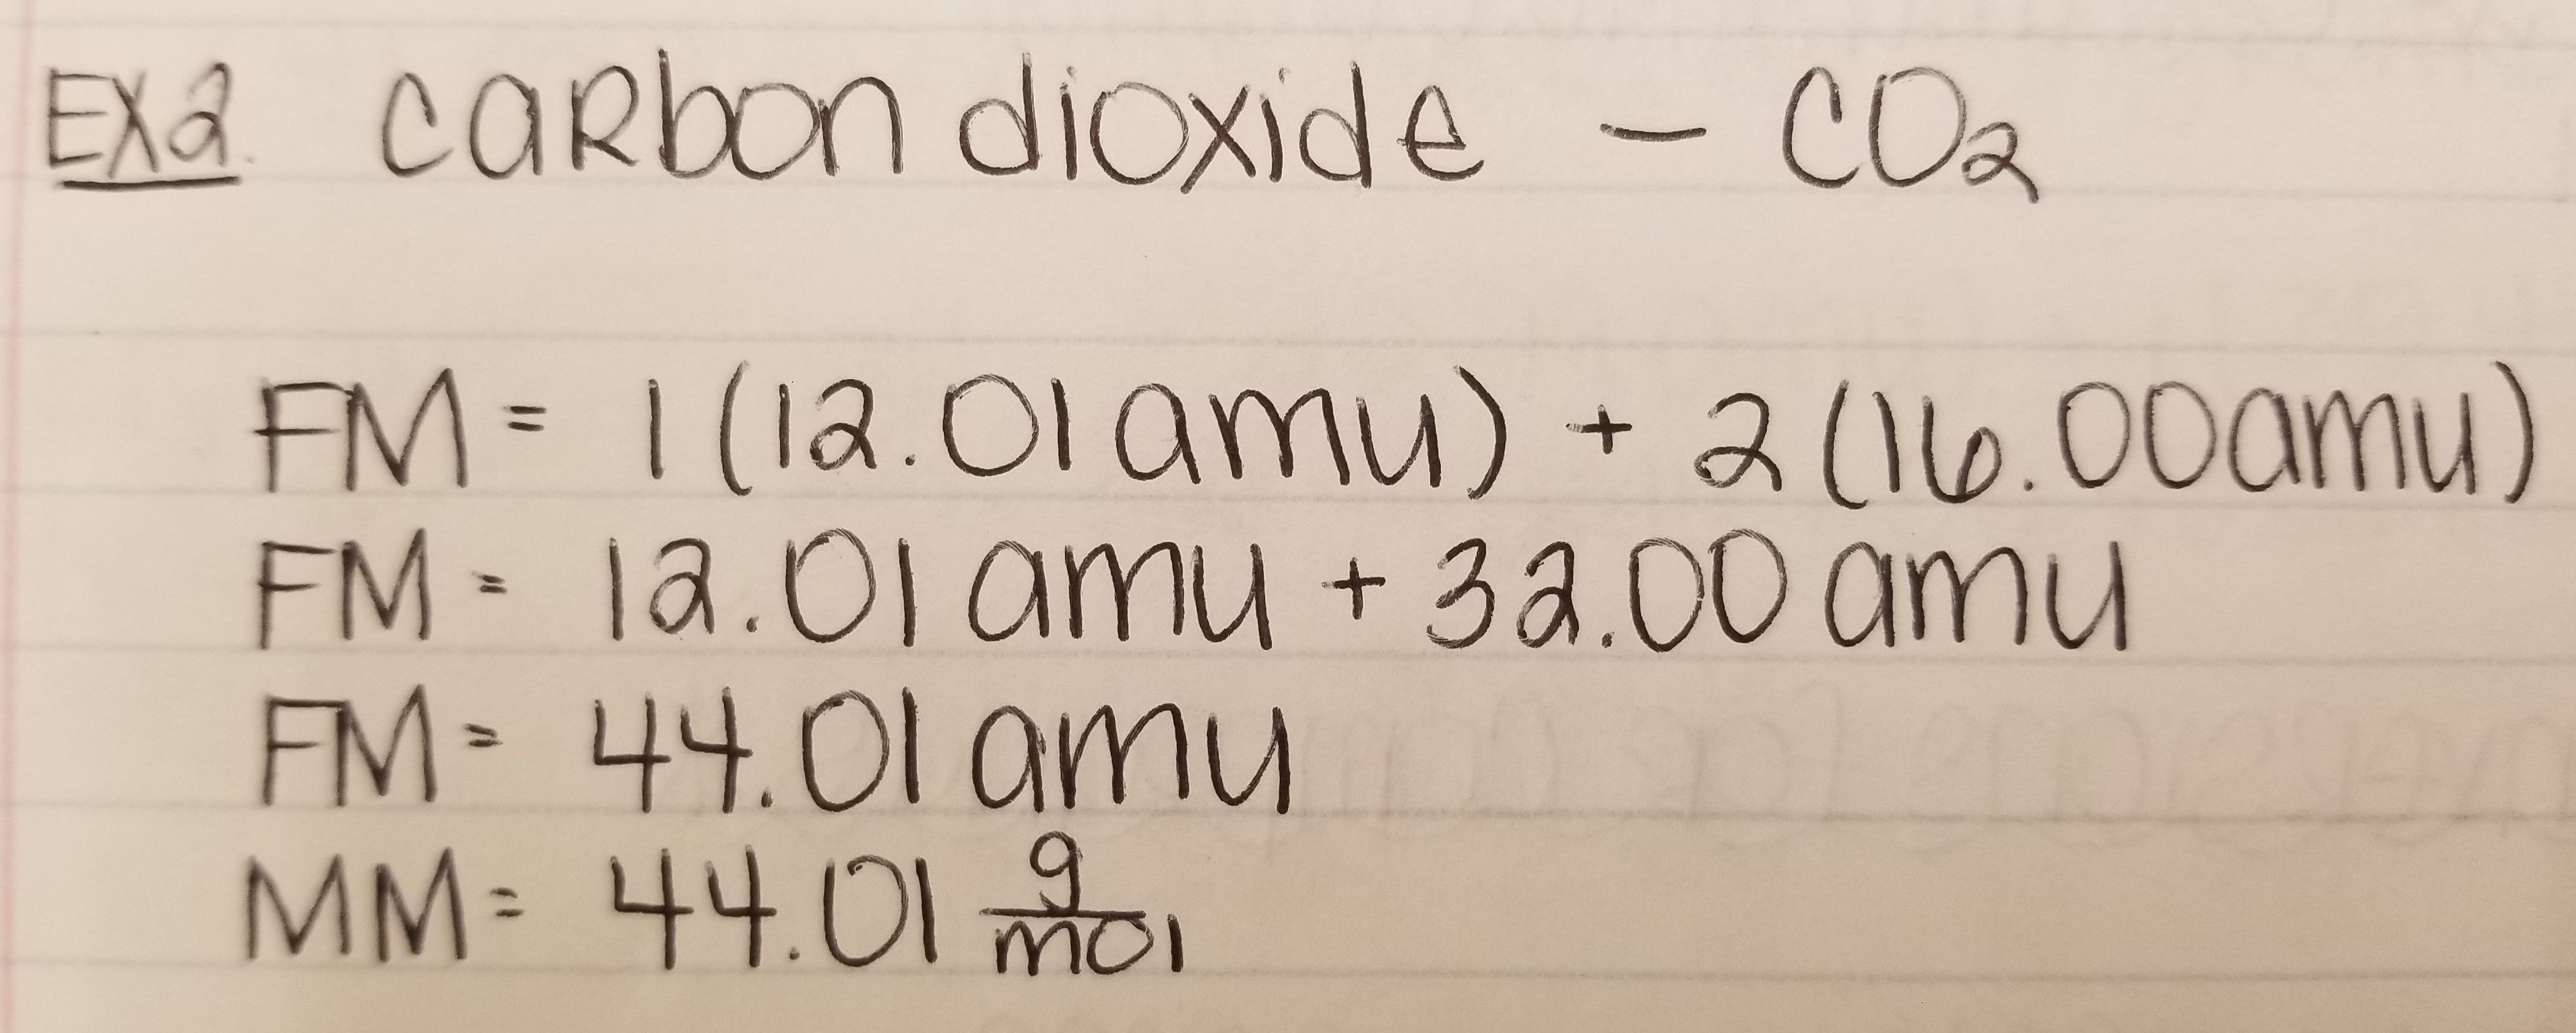 Ex2. carbon dioxide - CO₂
FM = 1 (12.01 amu) + 2 (16.00 amu)
FM = 12.01 amu + 32.00 amu
FM = 44.01 amu
MM = 44.01 g/mol